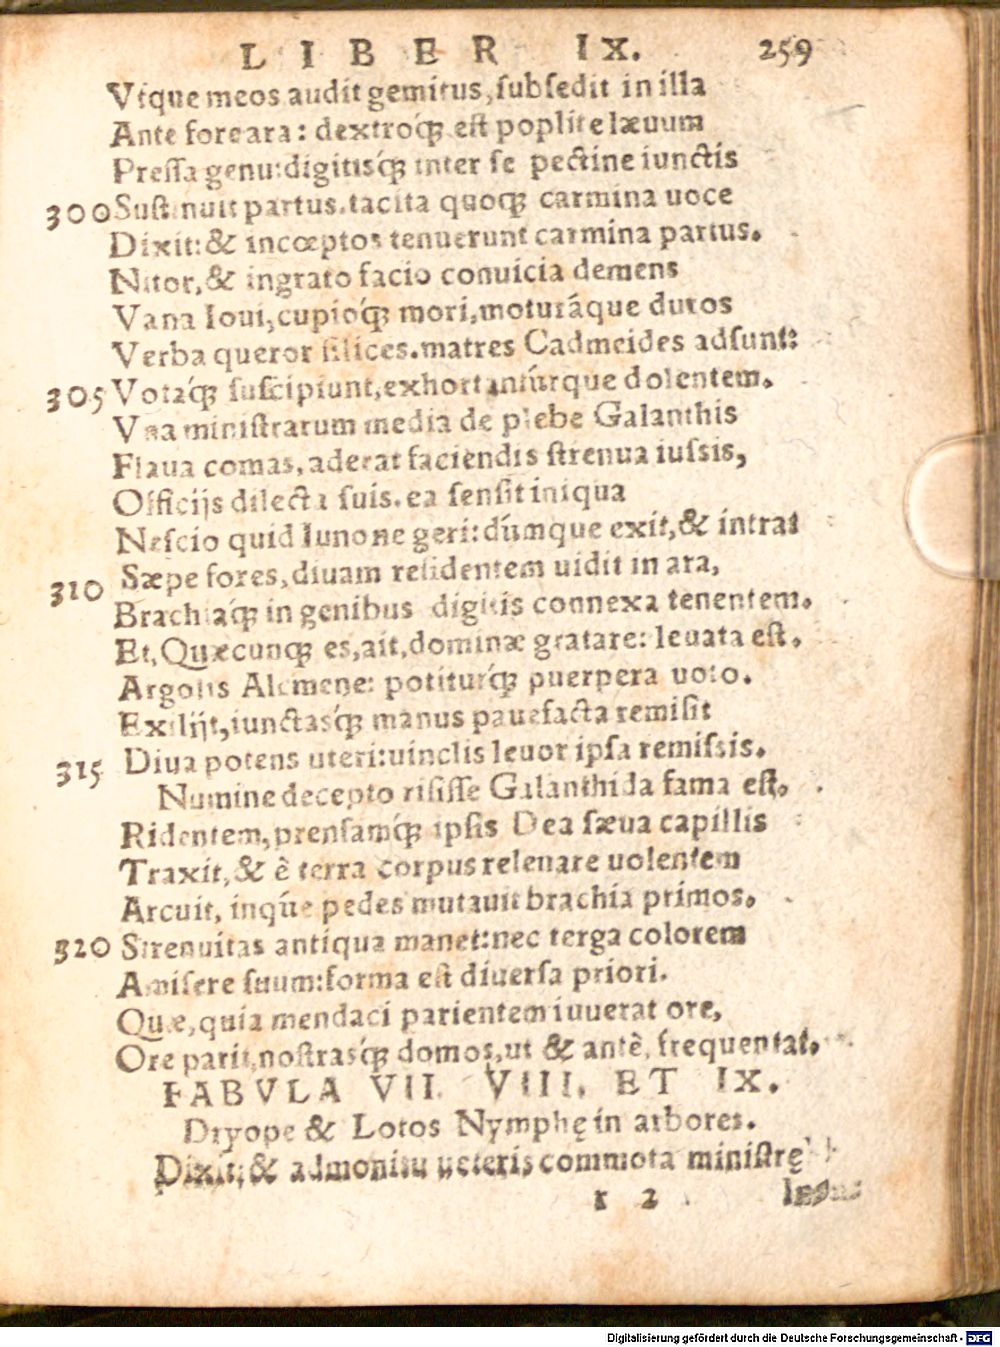 LIBER IX. 259
Vtque meos audit gemitus, subsedit in illa
Ante fores ara: dextroq́ꝫ est poplite læuum
Pressa genu: digitisq́ꝫ inter se pectine iunctis
300 Sustinuit partus. tacita quoqꝫ carmina uoce
Dixit: & incœptos tenuerunt carmina partus.
Nitor, & ingrato facio conuicia demens
Vana Ioui, cupioq́ꝫ mori, moturáque duros
Verba queror silices. matres Cadmeides adsunt:
305 Votaq́ꝫ suscipiunt, exhortantúrque dolentem.
Vna ministrarum media de plebe Galanthis
Flaua comas, aderat faciendis strenua iussis,
Officijs dilecta suis. ea sensit iniqua
Nescio quid Iunone geri: dúmque exit, & intrat
310 Sæpe fores, diuam residentem uidit in ara,
Brachiaq́ꝫ in genibus digitis connexa tenentem.
Et, Quæcunqꝫ es, ait, dominæ gratare: leuata est.
Argolis Alcmene: potiturq́ꝫ puerpera uoto.
Exilijt, iunctasq́ꝫ manus pauefacta remisit
315 Diua potens uteri: uinclis leuor ipsa remissis.
Numine decepto risisse Galanthida fama est.
Ridentem, prensamq́ꝫ ipsis Dea sæua capillis
Traxit, & è terra corpus releuare uolentem
Arcuit, inq́ue pedes mutauit brachia primos.
320 Strenuitas antiqua manet: nec terga colorem
Amisere suum: forma est diuersa priori.
Quæ, quia mendaci parientem iuuerat ore,
Ore parit, nostrasq́ꝫ domos, ut & antè, frequentat.
FABVLA VII. VIII. ET IX.
Dryope & Lotos Nymphę in arbores.
Dixit; & admonitu ueteris commota ministrę
r 2
Digitalisierung gefördert durch die Deutsche Forschungsgemeinschaft - DFG